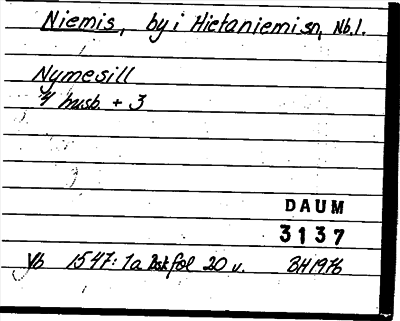 Niemis, by i Hietaniemi sn, Nb.l.
Nymesill
4 husb. + 3
DAUM
3137
Yb 1547: 1a Bsk fol 20 v. BH 1976